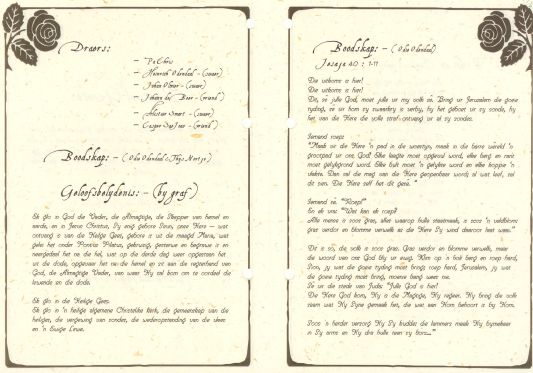 Draers:
– Pa Chris
– Heinrich Odendaal – (swaer)
– Johan Olmer – (swaer)
– Johann de Beer – (vriend)
– Alistair Smart – (swaer)
– Casper Saaiman – (vriend)
Boodskap: – (Oda Odendaal & Thys Mortje)
Geloofsbelydenis: – (by graf)
Ek glo in God die Vader, die Almagtige, die Skepper van hemel en
aarde, en in Jesus Christus, Sy enig gebore Seun, onse Here – wat
ontvang is van die Heilige Gees, gebore is uit die maagd Maria, wat
gely het onder Pontius Pilatus, gekruisig, gesterwe en begrawe is en
neergedaal het na die hel, wat op die derde dag weer opgestaan het
uit die dode, opgevaar het na die hemel en sit aan die regterhand van
God, die Almagtige Vader, van waar Hy sal kom om te oordeel die
lewende en die dode.
Ek glo in die Heilige Gees.
Ek glo in 'n heilige algemene Christelike kerk, die gemeenskap van die
heilige, vergewing van sonde, die wederopstanding van die vlees
en 'n Ewige Lewe.
Boodskap: – (Oda Odendaal)
Jesaja 40 : 1-11
Die uitkoms is hier!
Die uitkoms is hier!
Dit, sê julle God, moet julle vir my volk sê. Bring vir Jerusalem die goeie
tyding, sê vir hom sy swaarkry is verby, hy het geboet vir sy sonde, hy
het van die Here die volle straf ontvang vir al sy sondes.
Iemand roep:
"Maak vir die Here 'n pad in die woestyn, maak in die barre wêreld 'n
grootpad vir ons God! Elke laagte moet opgevul word, elke berg en rant
moet gelykgemaak word. Elke bult moet 'n gelykte word en elke koppie 'n
vlakte. Dan sal die mag van die Here geopenbaar word; al wat leef, sal
dit sien. Die Here self het dit gesê."
Iemand sê: "Roep!"
En ek vra: "Wat kan ek roep?
Alle mense is soos gras, alles waarop hulle staatmaak, is soos 'n veldblom:
gras verdor en blomme verwelk as die Here Sy wind daaroor laat waai."
Dit is so, die volk is soos gras. Gras verdor en blomme verwelk, maar
die woord van ons God bly vir ewig. Klim op 'n hoë berg en roep hard,
Sion, jy wat die goeie tyding moet bring; roep hard, Jerusalem, jy wat
die goeie tyding moet bring, moenie bang wees nie.
Sê vir die stede van Juda: "Julle God is hier!
Die Here God kom, Hy is die Magtige, Hy regeer. Hy bring die volk
saam wat Hy Syne gemaak het, die wat aan Hom behoort is by Hom.
Soos 'n herder versorg Hy Sy kudde; die lammers maak Hy bymekaar
in Sy arms en Hy dra hulle teen sy bors..."